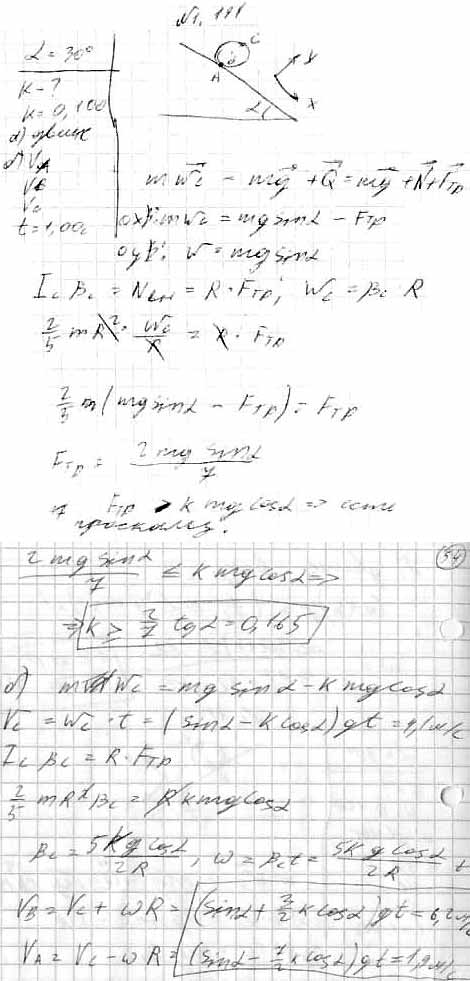 N1.191
α = 30°
k - ?
k = 0,100
V_A
V_B
V_C
t = 1,00c
A
C
α
y
x
m\vec{w}_c = m\vec{g} + \vec{Q} = m\vec{g} + \vec{N} + \vec{F}_{тр}
ox: mw_c = mg sinα - F_{тр}
oy: N = mg sinα
I_c β_c = N_{вн} = R · F_{тр}; w_c = β_c R
2/5 mR² · w_c/R = R · F_{тр}
2/5 m (mg sinα - F_{тр}) = F_{тр}
F_{тр} = 2mg sinα / 7
F_{тр} > k mg cosα => есть
проскальз.
2mg sinα / 7 ≤ k mg cosα =>
34
=> k ≥ 2/7 tgα = 0,165
б) m w_c = mg sinα - k mg cosα
V_c = w_c · t = (sinα - k cosα) gt = 4,1 м/с
I_c β_c = R · F_{тр}
2/5 mR² β_c = R k mg cosα
β_c = 5kg cosα / 2R, ω = β_c t = 5kg cosα / 2R t
V_B = V_c + ωR = (sinα + 3/2 k cosα) gt = 6,2 м/с
V_A = V_c - ωR = (sinα - 7/2 k cosα) gt = 1,9 м/с